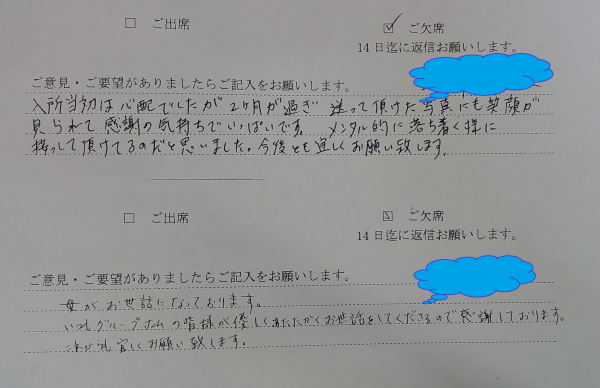 □ ご出席 ☑ ご欠席
14日迄に返信お願いします。
ご意見・ご要望がありましたらご記入をお願いします。
入所当初は心配でしたが2ヶ月が過ぎ 送って頂けた写真にも笑顔が
見られて感謝の気持ちでいっぱいです。 メンタル的に落ち着く様に
接して頂けてるのだと思いました。今後とも宜しくお願い致します。
□ ご出席 ☑ ご欠席
14日迄に返信お願いします。
ご意見・ご要望がありましたらご記入をお願いします。
母がお世話になっております。
いつもグループホームの皆様が優しくあたたかくお世話をしてくださるので感謝しております。
これからも宜しくお願い致します。